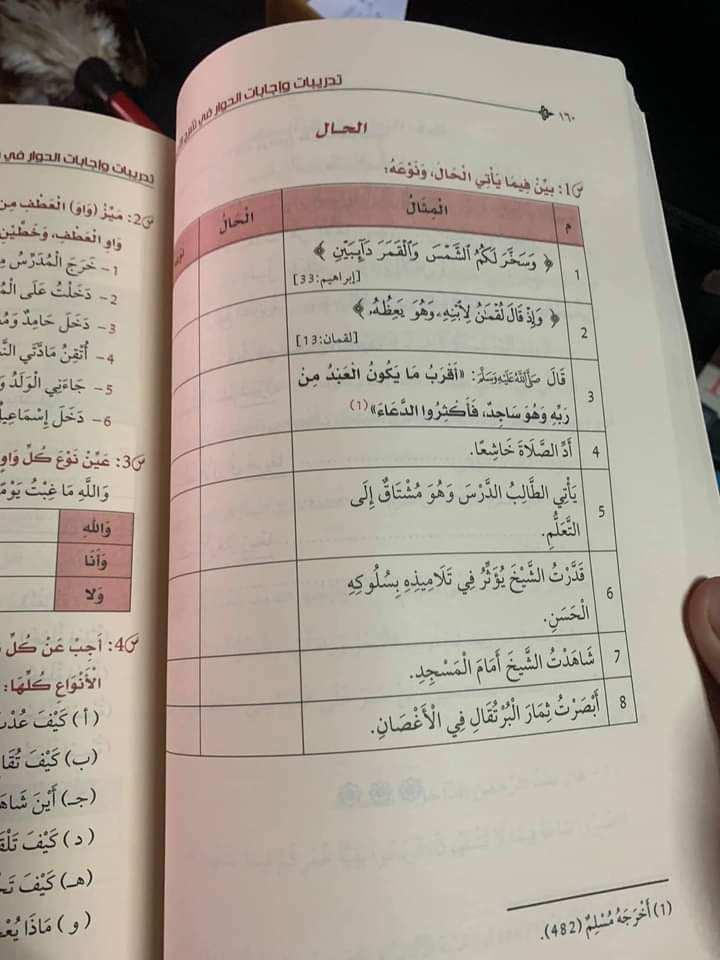 تدريبات وإجابات الحوار في شرح
١٦٠
الحال
س1: بَيِّنْ فِيمَا يَأْتِي الْحَالَ، وَنَوْعَهُ:
م
الْمِثَالُ
الْحَالُ
1
﴿ وَسَخَّرَ لَكُمُ الشَّمْسَ وَالْقَمَرَ دَآئِبَيْنِ ﴾
[إبراهيم:33]
2
﴿ وَإِذْ قَالَ لُقْمَانُ لِابْنِهِ وَهُوَ يَعِظُهُ ﴾
[لقمان:13]
3
قَالَ ﷺ: «أَقْرَبُ مَا يَكُونُ الْعَبْدُ مِنْ
رَبِّهِ وَهُوَ سَاجِدٌ، فَأَكْثِرُوا الدُّعَاءَ»(1)
4
أَدِّ الصَّلَاةَ خَاشِعًا.
5
يَأْتِي الطَّالِبُ الدَّرْسَ وَهُوَ مُشْتَاقٌ إِلَى
التَّعَلُّمِ.
6
قَدَّرْتُ الشَّيْخَ يُؤَثِّرُ فِي تَلَامِيذِهِ بِسُلُوكِهِ
الْحَسَنِ.
7
شَاهَدْتُ الشَّيْخَ أَمَامَ الْمَسْجِدِ.
8
أَبْصَرْتُ ثِمَارَ الْبُرْتُقَالِ فِي الْأَغْصَانِ.
(1) أَخْرَجَهُ مُسْلِمٌ (482).
تدريبات وإجابات الحوار في
س2: مَيِّزْ (وَاوَ) الْعَطْفِ مِنَ
وَاوِ الْعَطْفِ، وَخَطَّيْنِ
1- خَرَجَ الْمُدَرِّسُ
2- دَخَلْتُ عَلَى
3- دَخَلَ حَامِدٌ
4- أُتْقِنُ مَادَّتَيِ
5- جَاءَنِي الْوَلَدُ
6- دَخَلَ
س3: عَيِّنْ نَوْعَ كُلِّ وَاوٍ
وَاللهِ مَا غِبْتُ يَوْمًا
وَاللهِ
وَأَنَا
وَلا
س4: أَجِبْ عَنْ كُلِّ
الْأَنْوَاعِ كُلِّهَا:
(أ) كَيْفَ
(ب) كَيْفَ
(جـ) أَيْنَ
(د) كَيْفَ
(هـ) كَيْفَ
(و) مَاذَا